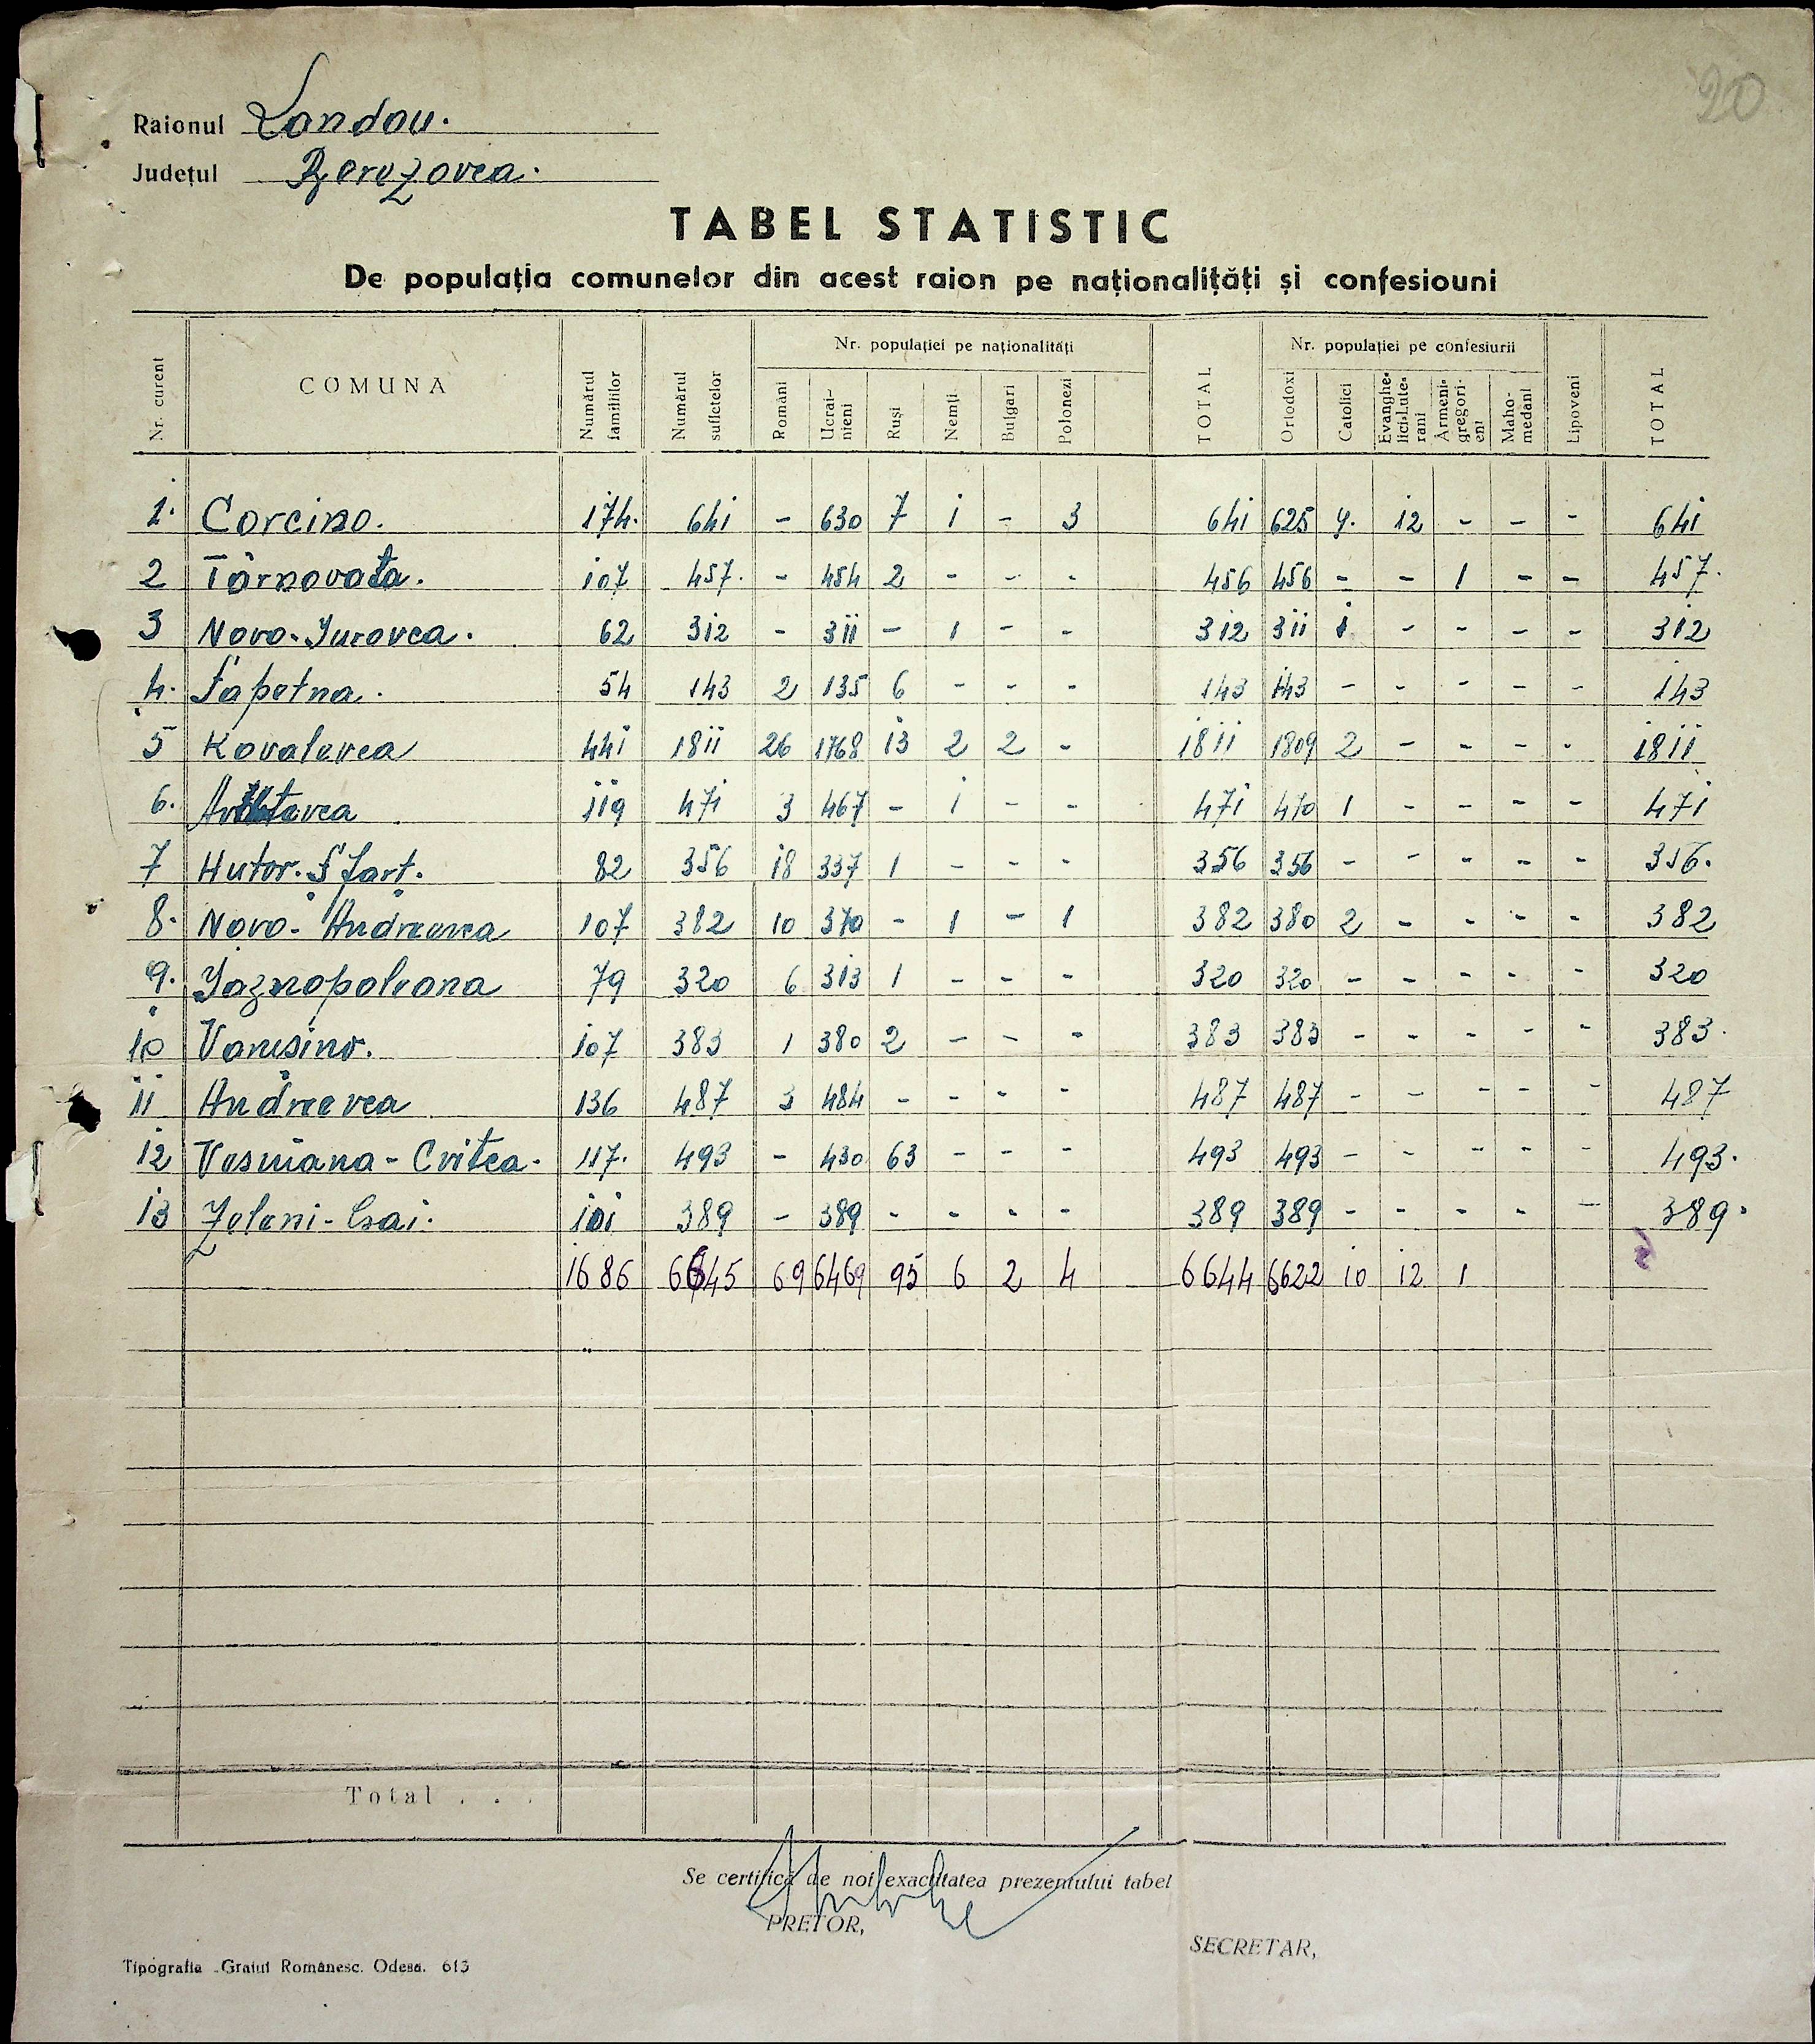 20
Raionul Landau.
Județul Berezovca.
TABEL STATISTIC
De populația comunelor din acest raion pe naționalități și confesiouni
Nr. curent COMUNA Numărul familiilor Numărul sufletelor Nr. populației pe naționalități TOTAL Nr. populației pe confesiurii Lipoveni TOTAL
Români Ucrai-nieni Ruși Nemți Bulgari Polonezi Ortodoxi Catolici Evanghe-lici-Lute-rani Armeni-gregori-eni Maho-medani
1. Corcino. 174. 641 - 630 7 1 - 3 641 625 4. 12 - - - 641
2 Târnovata. 107 457. - 454 2 - - - 456 456 - - 1 - - 457.
3 Novo-Iurovca. 62 312 - 311 - 1 - - 312 311 1 - - - - 312
4. Sapetna. 54 143 2 135 6 - - - 143 143 - - - - - 143
5 Kovalevca 441 1811 26 1768 13 2 2 - 1811 1809 2 - - - - 1811
6. 119 471 3 467 - 1 - - 471 470 1 - - - - 471
7 Hutor. Sfart. 82 356 18 337 1 - - - 356 356 - - - - - 356.
8. Novo-Andreevca 107 382 10 370 - 1 - 1 382 380 2 - - - - 382
9. Iaznopoleana 79 320 6 313 1 - - - 320 320 - - - - - 320
10 Vanisino. 107 383 1 380 2 - - - 383 383 - - - - - 383.
11 Andreevca 136 487 3 484 - - - - 487 487 - - - - - 487
12 Vesniana-Cvitca. 117. 493 - 430 63 - - - 493 493 - - - - - 493.
13 Zeleni-Gai. 101 389 - 389 - - - - 389 389 - - - - - 389.
1686 6645 69 6469 95 6 2 4 6644 6622 10 12 1
Total . . .
Se certifică de noi exactitatea prezentului tabel
PRETOR,
SECRETAR,
Tipografia „Graiul Românesc. Odesa. 613